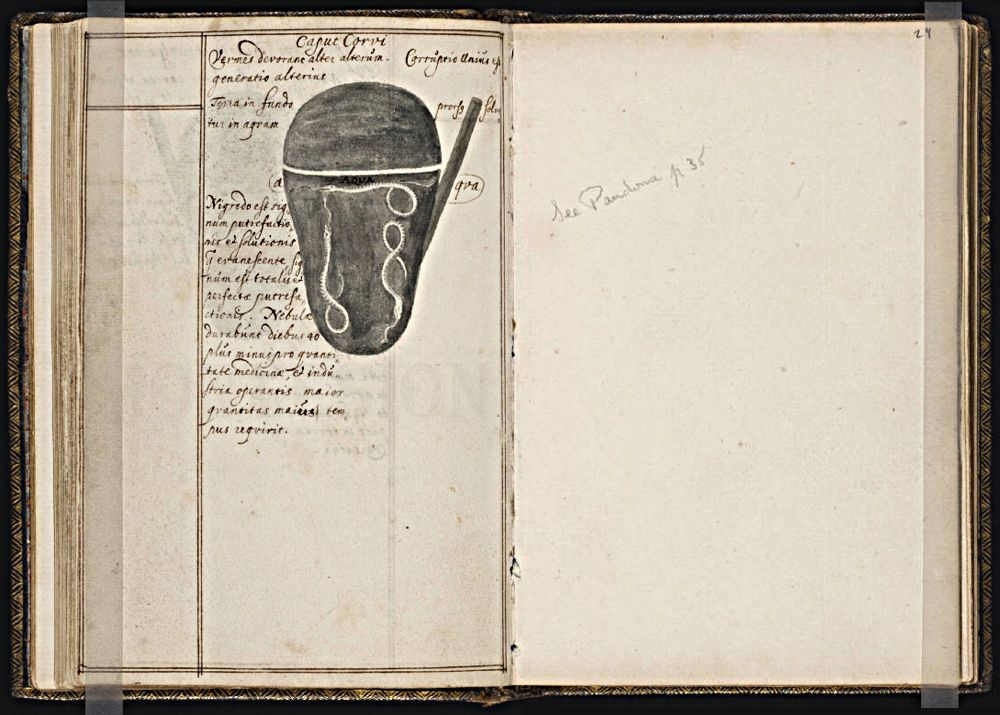 Caput Corvi
Vermes devorant alter alterum. Corruptio Unius e
generatio alterius
Terra in fundo prorsq solv
tur in aqram
a AQVA qva
Nigredo est sig
num putrefactio,
nis et solutionis
q evanescente sig
num est totalis et
perfectæ putrefa,
ctionis. Nebulæ
durabunt diebus 40
plus minus pro qvanti,
tate medicinæ, et indu,
stria operantis. maior
qvantitas maius tem,
pus reqvirit.
24
See Pandora p 35